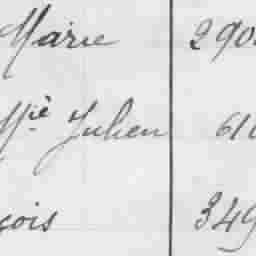 Marie 290
Mie Julien 61
çois 349